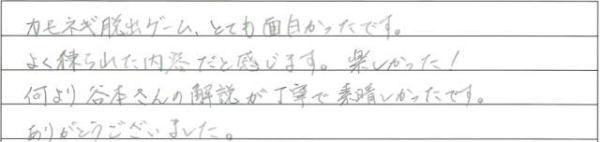 カモネギ脱出ゲーム、とても面白かったです。
よく練られた内容だと感じます。楽しかった!
何より谷本さんの解説が丁寧で素晴しかったです。
ありがとうございました。